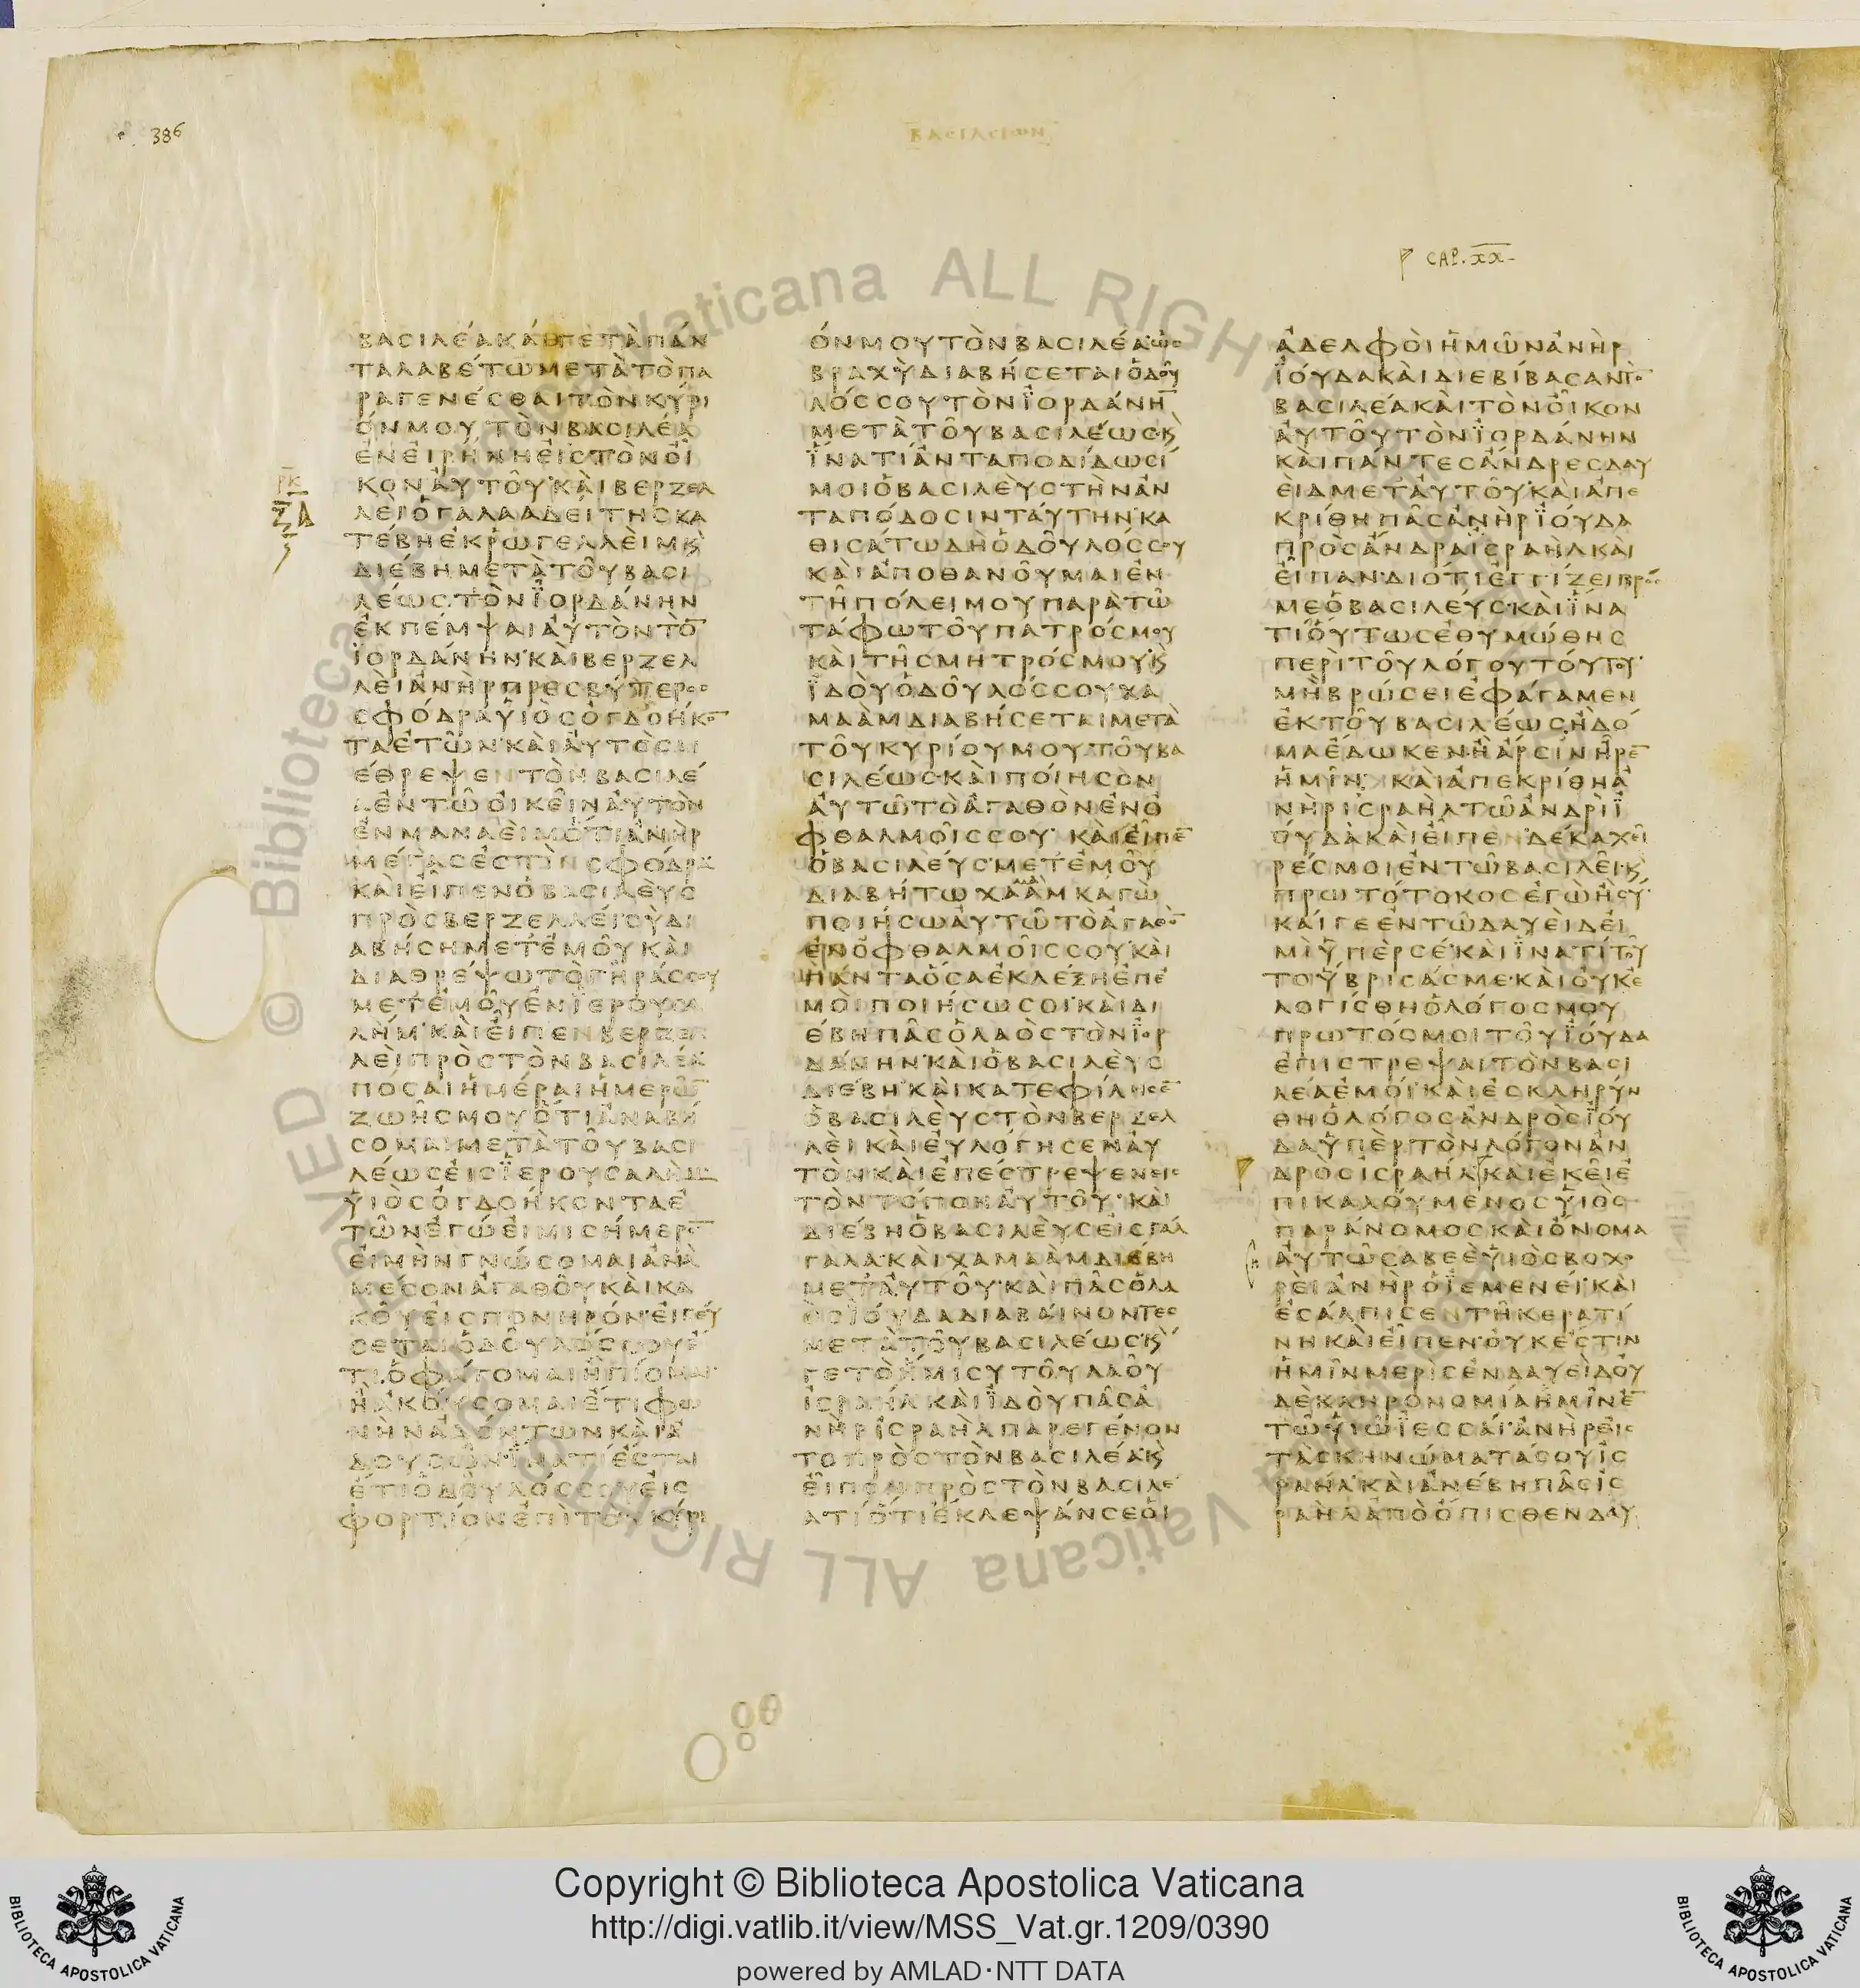 386
ΒΑΣΙΛΕΙΩΝ
CAP. XX
ΒΑCΙΛΕΑΚΑΙΓΕΤΑΠΑΝ
ΤΑΛΑΒΕΤΩΜΕΤΑΤΟΠΑ
ΡΑΓΕΝΕCΘΑΙΤΟΝΚΥΡΙ
ΟΝΜΟΥΤΟΝΒΑCΙΛΕΑ
ΕΝΕΙΡΗΝΗΕΙCΤΟΝΟΙ
ΚΟΝΑΥΤΟΥΚΑΙΒΕΡΖΕΛ
ΛΕΙΟΓΑΛΑΑΔΕΙΤΗCΚΑ
ΤΕΒΗΕΚΡΩΓΕΛΛΕΙΜΚ
ΔΙΕΒΗΜΕΤΑΤΟΥΒΑCΙ
ΛΕΩCΤΟΝΙΟΡΔΑΝΗΝ
ΕΚΠΕΜΨΑΙΑΥΤΟΝΤΟ
ΙΟΡΔΑΝΗΝΚΑΙΒΕΡΖΕΛ
ΛΕΙΑΝΗΡΠΡΕCΒΥΤΕΡΟC
CΦΟΔΡΑΥΙΟCΟΓΔΟΗΚΟ
ΤΑΕΤΩΝΚΑΙΑΥΤΟCΔΙ
ΕΘΡΕΨΕΝΤΟΝΒΑCΙΛΕ
ΑΕΝΤΩΟΙΚΕΙΝΑΥΤΟΝ
ΕΝΜΑΝΑΕΙΜΟΤΙΑΝΗΡ
ΜΕΓΑCΕCΤΙΝCΦΟΔΡΑ
ΚΑΙΕΙΠΕΝΟΒΑCΙΛΕΥC
ΠΡΟCΒΕΡΖΕΛΛΕΙCΥΔΙ
ΑΒΗCΗΜΕΤΕΜΟΥΚΑΙ
ΔΙΑΘΡΕΨΩΤΟΓΗΡΑCCΟΥ
ΜΕΤΕΜΟΥΕΝΙΕΡΟΥCΑ
ΛΗΜΚΑΙΕΙΠΕΝΒΕΡΖΕΛ
ΛΕΙΠΡΟCΤΟΝΒΑCΙΛΕΑ
ΠΟCΑΙΗΜΕΡΑΙΗΜΕΡΩ
ΖΩΗCΜΟΥΟΤΙΑΝΑΒΗ
CΟΜΑΙΜΕΤΑΤΟΥΒΑCΙ
ΛΕΩCΕΙCΙΕΡΟΥCΑΛΗΜ
ΥΙΟCΟΓΔΟΗΚΟΝΤΑΕ
ΤΩΝΕΓΩΕΙΜΙCΗΜΕΡΟ
ΕΙΜΗΝΓΝΩCΟΜΑΙΑΝΑ
ΜΕCΟΝΑΓΑΘΟΥΚΑΙΚΑ
ΚΟΥΕΙCΠΟΝΗΡΟΝΕΙΓΕΥ
CΕΤΑΙΟΔΟΥΛΟCCΟΥΕ
ΤΙΟΦΑΓΟΜΑΙΗΠΙΟΜΑΙ
ΗΑΚΟΥCΟΜΑΙΕΤΙΦΩ
ΝΗΝΑΔΟΝΤΩΝΚΑΙΑ
ΔΟΥCΩΝΙΝΑΤΙΕCΤΑΙ
ΕΤΙΟΔΟΥΛΟCCΟΥΕΙC
ΦΟΡΤΙΟΝΕΠΙΤΟΝΚΥΡΙ
ΟΝΜΟΥΤΟΝΒΑCΙΛΕΑΩC
ΒΡΑΧΥΔΙΑΒΗCΕΤΑΙΟΔΟΥ
ΛΟCCΟΥΤΟΝΙΟΡΔΑΝΗ
ΜΕΤΑΤΟΥΒΑCΙΛΕΩCΚ
ΙΝΑΤΙΑΝΤΑΠΟΔΙΔΩCΙ
ΜΟΙΟΒΑCΙΛΕΥCΤΗΝΑΝ
ΤΑΠΟΔΟCΙΝΤΑΥΤΗΝΚΑ
ΘΙCΑΤΩΔΗΟΔΟΥΛΟCCΟΥ
ΚΑΙΑΠΟΘΑΝΟΥΜΑΙΕΝ
ΤΗΠΟΛΕΙΜΟΥΠΑΡΑΤΩ
ΤΑΦΩΤΟΥΠΑΤΡΟCΜΟΥ
ΚΑΙΤΗCΜΗΤΡΟCΜΟΥΚ
ΙΔΟΥΟΔΟΥΛΟCCΟΥΧΑ
ΜΑΑΜΔΙΑΒΗCΕΤΑΙΜΕΤΑ
ΤΟΥΚΥΡΙΟΥΜΟΥΤΟΥΒΑ
CΙΛΕΩCΚΑΙΠΟΙΗCΟΝ
ΑΥΤΩΤΟΑΓΑΘΟΝΕΝΟ
ΦΘΑΛΜΟΙCCΟΥΚΑΙΕΙΠΕ
ΟΒΑCΙΛΕΥCΜΕΤΕΜΟΥ
ΔΙΑΒΗΤΩΧΑΑΜΚΑΓΩ
ΠΟΙΗCΩΑΥΤΩΤΟΑΓΑΘΟ
ΕΝΟΦΘΑΛΜΟΙCCΟΥΚΑΙ
ΠΑΝΤΑΟCΑΕΚΛΕΞΗΕΠΕ
ΜΟΙΠΟΙΗCΩCΟΙΚΑΙΔΙ
ΕΒΗΠΑCΟΛΑΟCΤΟΝΙΟΡ
ΔΑΝΗΝΚΑΙΟΒΑCΙΛΕΥC
ΔΙΕΒΗΚΑΙΚΑΤΕΦΙΛΗCΕ
ΟΒΑCΙΛΕΥCΤΟΝΒΕΡΖΕΛ
ΛΕΙΚΑΙΕΥΛΟΓΗCΕΝΑΥ
ΤΟΝΚΑΙΕΠΕCΤΡΕΨΕΝΕΙC
ΤΟΝΤΟΠΟΝΑΥΤΟΥΚΑΙ
ΔΙΕΒΗΟΒΑCΙΛΕΥCΕΙCΓΑΛ
ΓΑΛΑΚΑΙΧΑΜΑΑΜΔΙΕΒΗ
ΜΕΤΑΥΤΟΥΚΑΙΠΑCΟΛΑ
ΟCΙΟΥΔΑΔΙΑΒΑΙΝΟΝΤΕC
ΜΕΤΑΤΟΥΒΑCΙΛΕΩCΚ
ΓΕΤΟΗΜΙCΥΤΟΥΛΑΟΥ
ΙCΡΑΗΛΚΑΙΙΔΟΥΠΑCΑ
ΝΗΡΙCΡΑΗΛΠΑΡΕΓΕΝΟΝ
ΤΟΠΡΟCΤΟΝΒΑCΙΛΕΑΚ
ΕΙΠΟΝΠΡΟCΤΟΝΒΑCΙΛΕ
ΑΤΙΟΤΙΕΚΛΕΨΑΝCΕΟΙ
ΑΔΕΛΦΟΙΗΜΩΝΑΝΗΡ
ΙΟΥΔΑΚΑΙΔΙΕΒΙΒΑCΑΝΤΟ
ΒΑCΙΛΕΑΚΑΙΤΟΝΟΙΚΟΝ
ΑΥΤΟΥΤΟΝΙΟΡΔΑΝΗΝ
ΚΑΙΠΑΝΤΕCΑΝΔΡΕCΔΑΥ
ΕΙΔΜΕΤΑΥΤΟΥΚΑΙΑΠΕ
ΚΡΙΘΗΠΑCΑΝΗΡΙΟΥΔΑ
ΠΡΟCΑΝΔΡΑΙCΡΑΗΛΚΑΙ
ΕΙΠΑΝΔΙΟΤΙΕΓΓΙΖΕΙΠΡΟC
ΜΕΟΒΑCΙΛΕΥCΚΑΙΙΝΑ
ΤΙΟΥΤΩCΕΘΥΜΩΘΗC
ΠΕΡΙΤΟΥΛΟΓΟΥΤΟΥΤΟΥ
ΜΗΒΡΩCΕΙΕΦΑΓΑΜΕΝ
ΕΚΤΟΥΒΑCΙΛΕΩCΗΔΟ
ΜΑΕΔΩΚΕΝΗΑΡCΙΝΗΡΕ
ΗΜΙΝΚΑΙΑΠΕΚΡΙΘΗΑ
ΝΗΡΙCΡΑΗΛΤΩΑΝΔΡΙΙ
ΟΥΔΑΚΑΙΕΙΠΕΝΔΕΚΑΧΕΙ
ΡΕCΜΟΙΕΝΤΩΒΑCΙΛΕΙΚ
ΠΡΩΤΟΤΟΚΟCΕΓΩΗCΥ
ΚΑΙΓΕΕΝΤΩΔΑΥΕΙΔΕΙ
ΜΙΥΠΕΡCΕΚΑΙΙΝΑΤΙΤΟΥ
ΤΟΥΒΡΙCΑCΜΕΚΑΙΟΥΚΕ
ΛΟΓΙCΘΗΟΛΟΓΟCΜΟΥ
ΠΡΩΤΟCΜΟΙΤΟΥΙΟΥΔΑ
ΕΠΙCΤΡΕΨΑΙΤΟΝΒΑCΙ
ΛΕΑΕΜΟΙΚΑΙΕCΚΛΗΡΥΝ
ΘΗΟΛΟΓΟCΑΝΔΡΟCΙΟΥ
ΔΑΥΠΕΡΤΟΝΛΟΓΟΝΑΝ
ΔΡΟCΙCΡΑΗΛΚΑΙΕΚΕΙΕ
ΠΙΚΑΛΟΥΜΕΝΟCΥΙΟC
ΠΑΡΑΝΟΜΟCΚΑΙΟΝΟΜΑ
ΑΥΤΩCΑΒΕΕΥΙΟCΒΟΧΟ
ΡΕΙΑΝΗΡΟΙΕΜΕΝΕΙΚΑΙ
ΕCΑΛΠΙCΕΝΤΗΚΕΡΑΤΙ
ΝΗΚΑΙΕΙΠΕΝΟΥΚΕCΤΙΝ
ΗΜΙΝΜΕΡΙCΕΝΔΑΥΕΙΔΟΥ
ΔΕΚΛΗΡΟΝΟΜΙΑΗΜΙΝΕ
ΤΩΥΙΩΙΕCCΑΙΑΝΗΡΕΙC
ΤΑCΚΗΝΩΜΑΤΑCΟΥΙC
ΡΑΗΛΚΑΙΑΝΕΒΗΠΑCΙC
ΡΑΗΛΑΠΟΟΠΙCΘΕΝΔΑΥ
Copyright © Biblioteca Apostolica Vaticana
http://digi.vatlib.it/view/MSS_Vat.gr.1209/0390
powered by AMLAD·NTT DATA
BIBLIOTECA APOSTOLICA VATICANA
BIBLIOTECA APOSTOLICA VATICANA